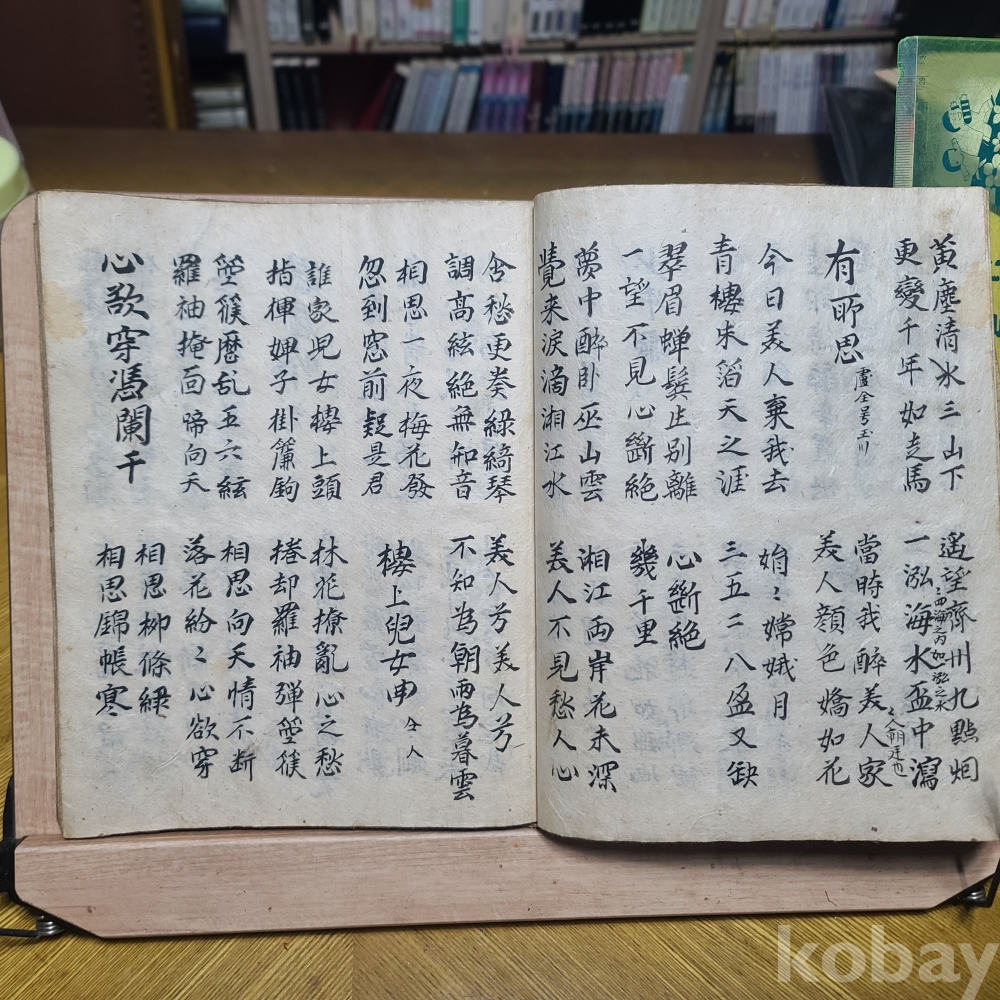 黃塵清水三山下
更變千年如走馬
遙望齊州九點烟
一泓海水盃中瀉
有所思
盧仝号玉川
當時我醉美人家
美人顔色嬌如花
今日美人棄我去
青樓朱箔天之涯
娟〻嫦娥月
三五二八盈又缺
翠眉蟬鬂生别離
一望不見心斷絶
心斷絶
幾千里
夢中醉卧巫山雲
覺來淚滴湘江水
湘江両岸花木深
美人不見愁人心
含愁更奏綠綺琴
調高絃絶無知音
美人兮美人兮
不知為朝雨為暮雲
相思一夜梅花發
忽到窓前疑是君
樓上兒女曲 仝人
誰家児女樓上頭
指揮婢子掛簾鉤
林花撩亂心之愁
捲却羅袖弾箜篌
箜篌歴乱五六絃
羅袖掩面啼向天
相思向天情不断
落花紛〻心欲穿
心欲穿憑闌干
相思柳條綠
相思錦帳寒
kobay